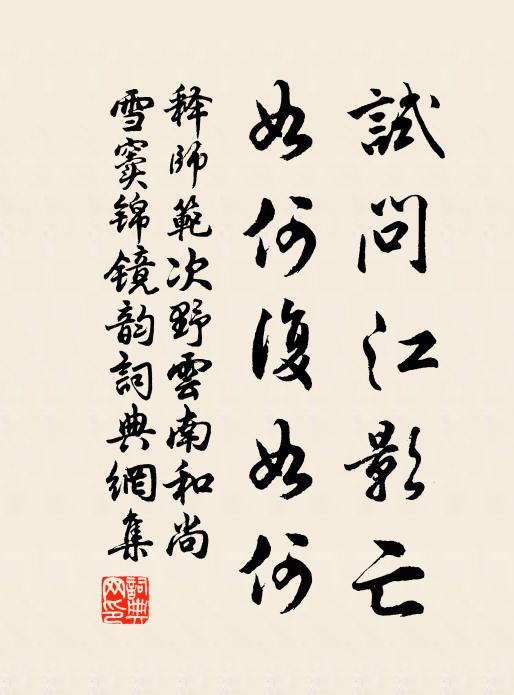 試問江影亡
如何復如何
释師範次野雲南和尚
雪窦锦镜韵詞典網集
詞典